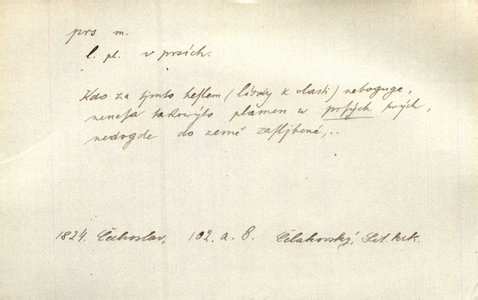 prs m.
l. pl. v prsích.
Kdo za tjmto heslem (lásky k vlasti) neboguge,
nenesa takowýto plamen w prsých swých,
nedogde do země zasljbené,..
1824. Čechoslav, 102. a. B. Čelakovský, Lit. krk.